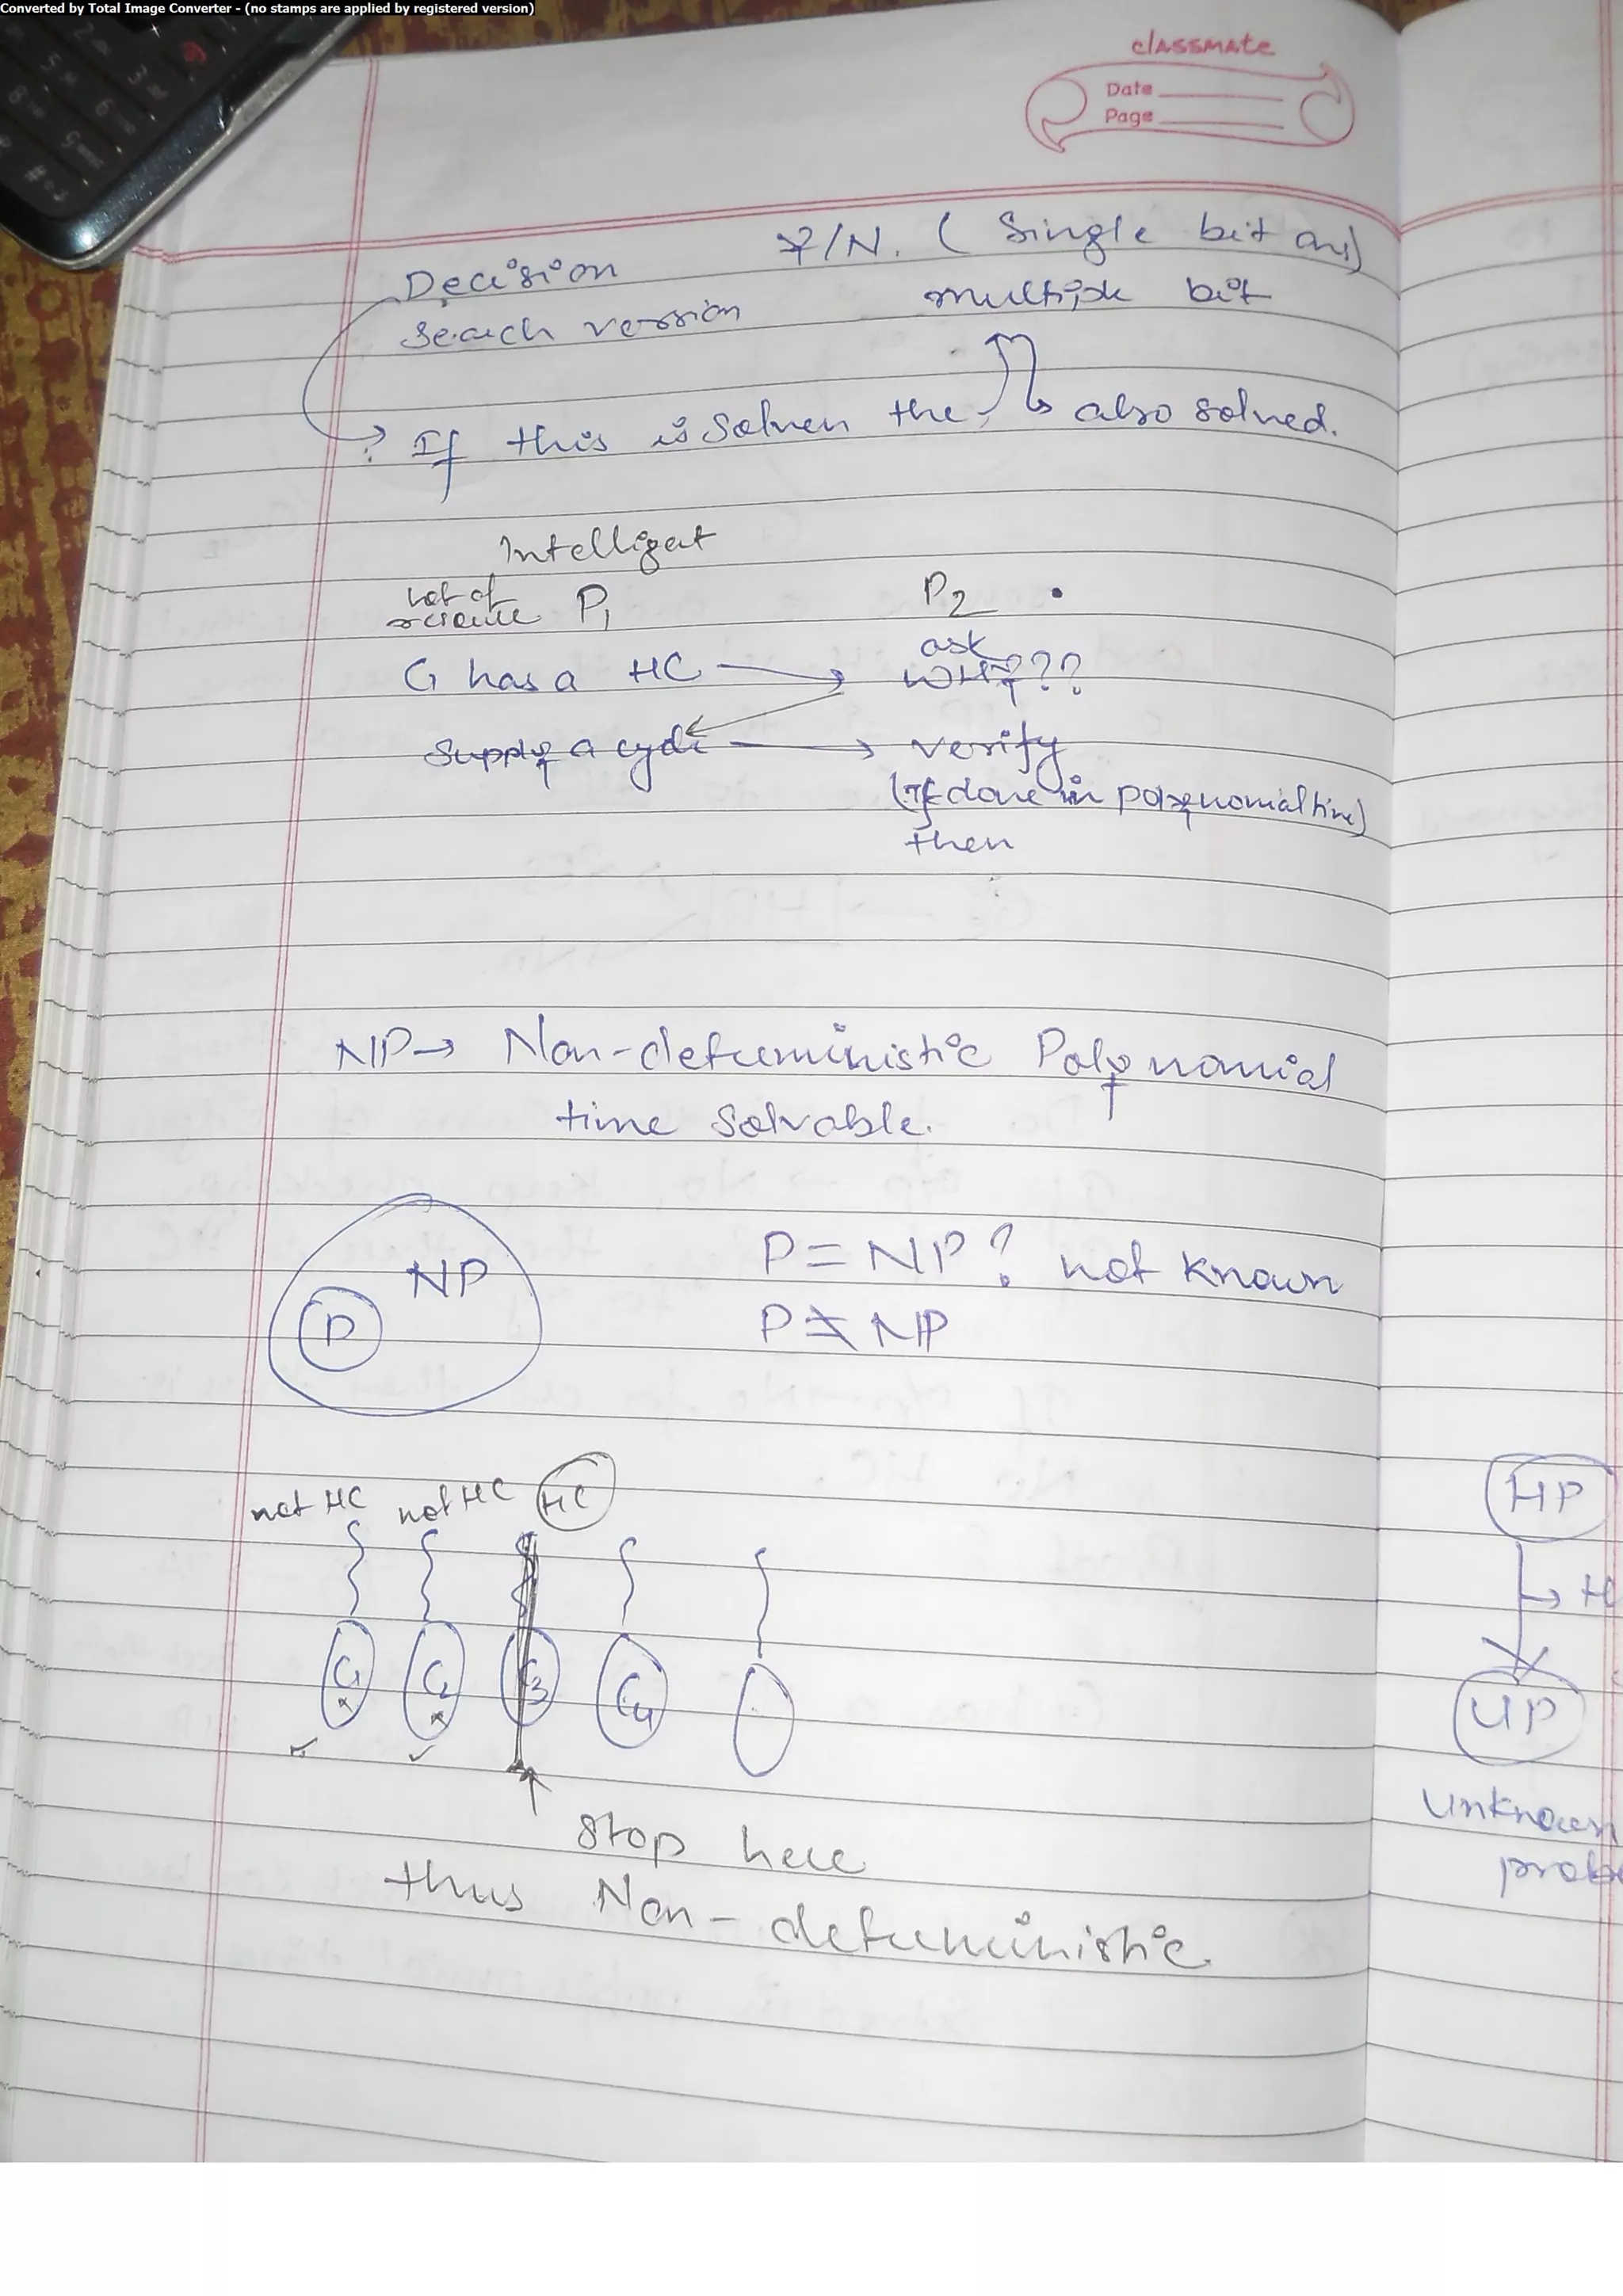 Converted by Total Image Converter - (no stamps are applied by registered version)
classmate
Date
Page
Decision Y/N. (Single bit ans)
Search version multiple bit
? If this is Solven the, also solved.
Intelligent
Lot of
P1 P2
G has a HC → ask
WHY???
Supply a cycle → verify
(If done in polynomial time)
then
NP → Non-deterministic Polynomial
time Solvable.
NP
P
P = NP? not known
P ≠ NP
not HC not HC HC
C1 C2 C3 C4
Stop here
thus Non-deterministic.
HP
→ H
UP
Unknown
prob